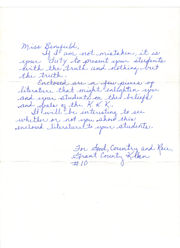 Miss Benefield,
If I am not mistaken, it is
your duty to present your students
with the truth and nothing but
the truth.
Enclosed are a few pieces of
literature that might enlighten you
and your students on the beliefs
and goals of the K.K.K.
It will be interesting to see
whether or not you share this
enclosed literature to your students.
For God, Country and Race,
Grant County Klan
#10